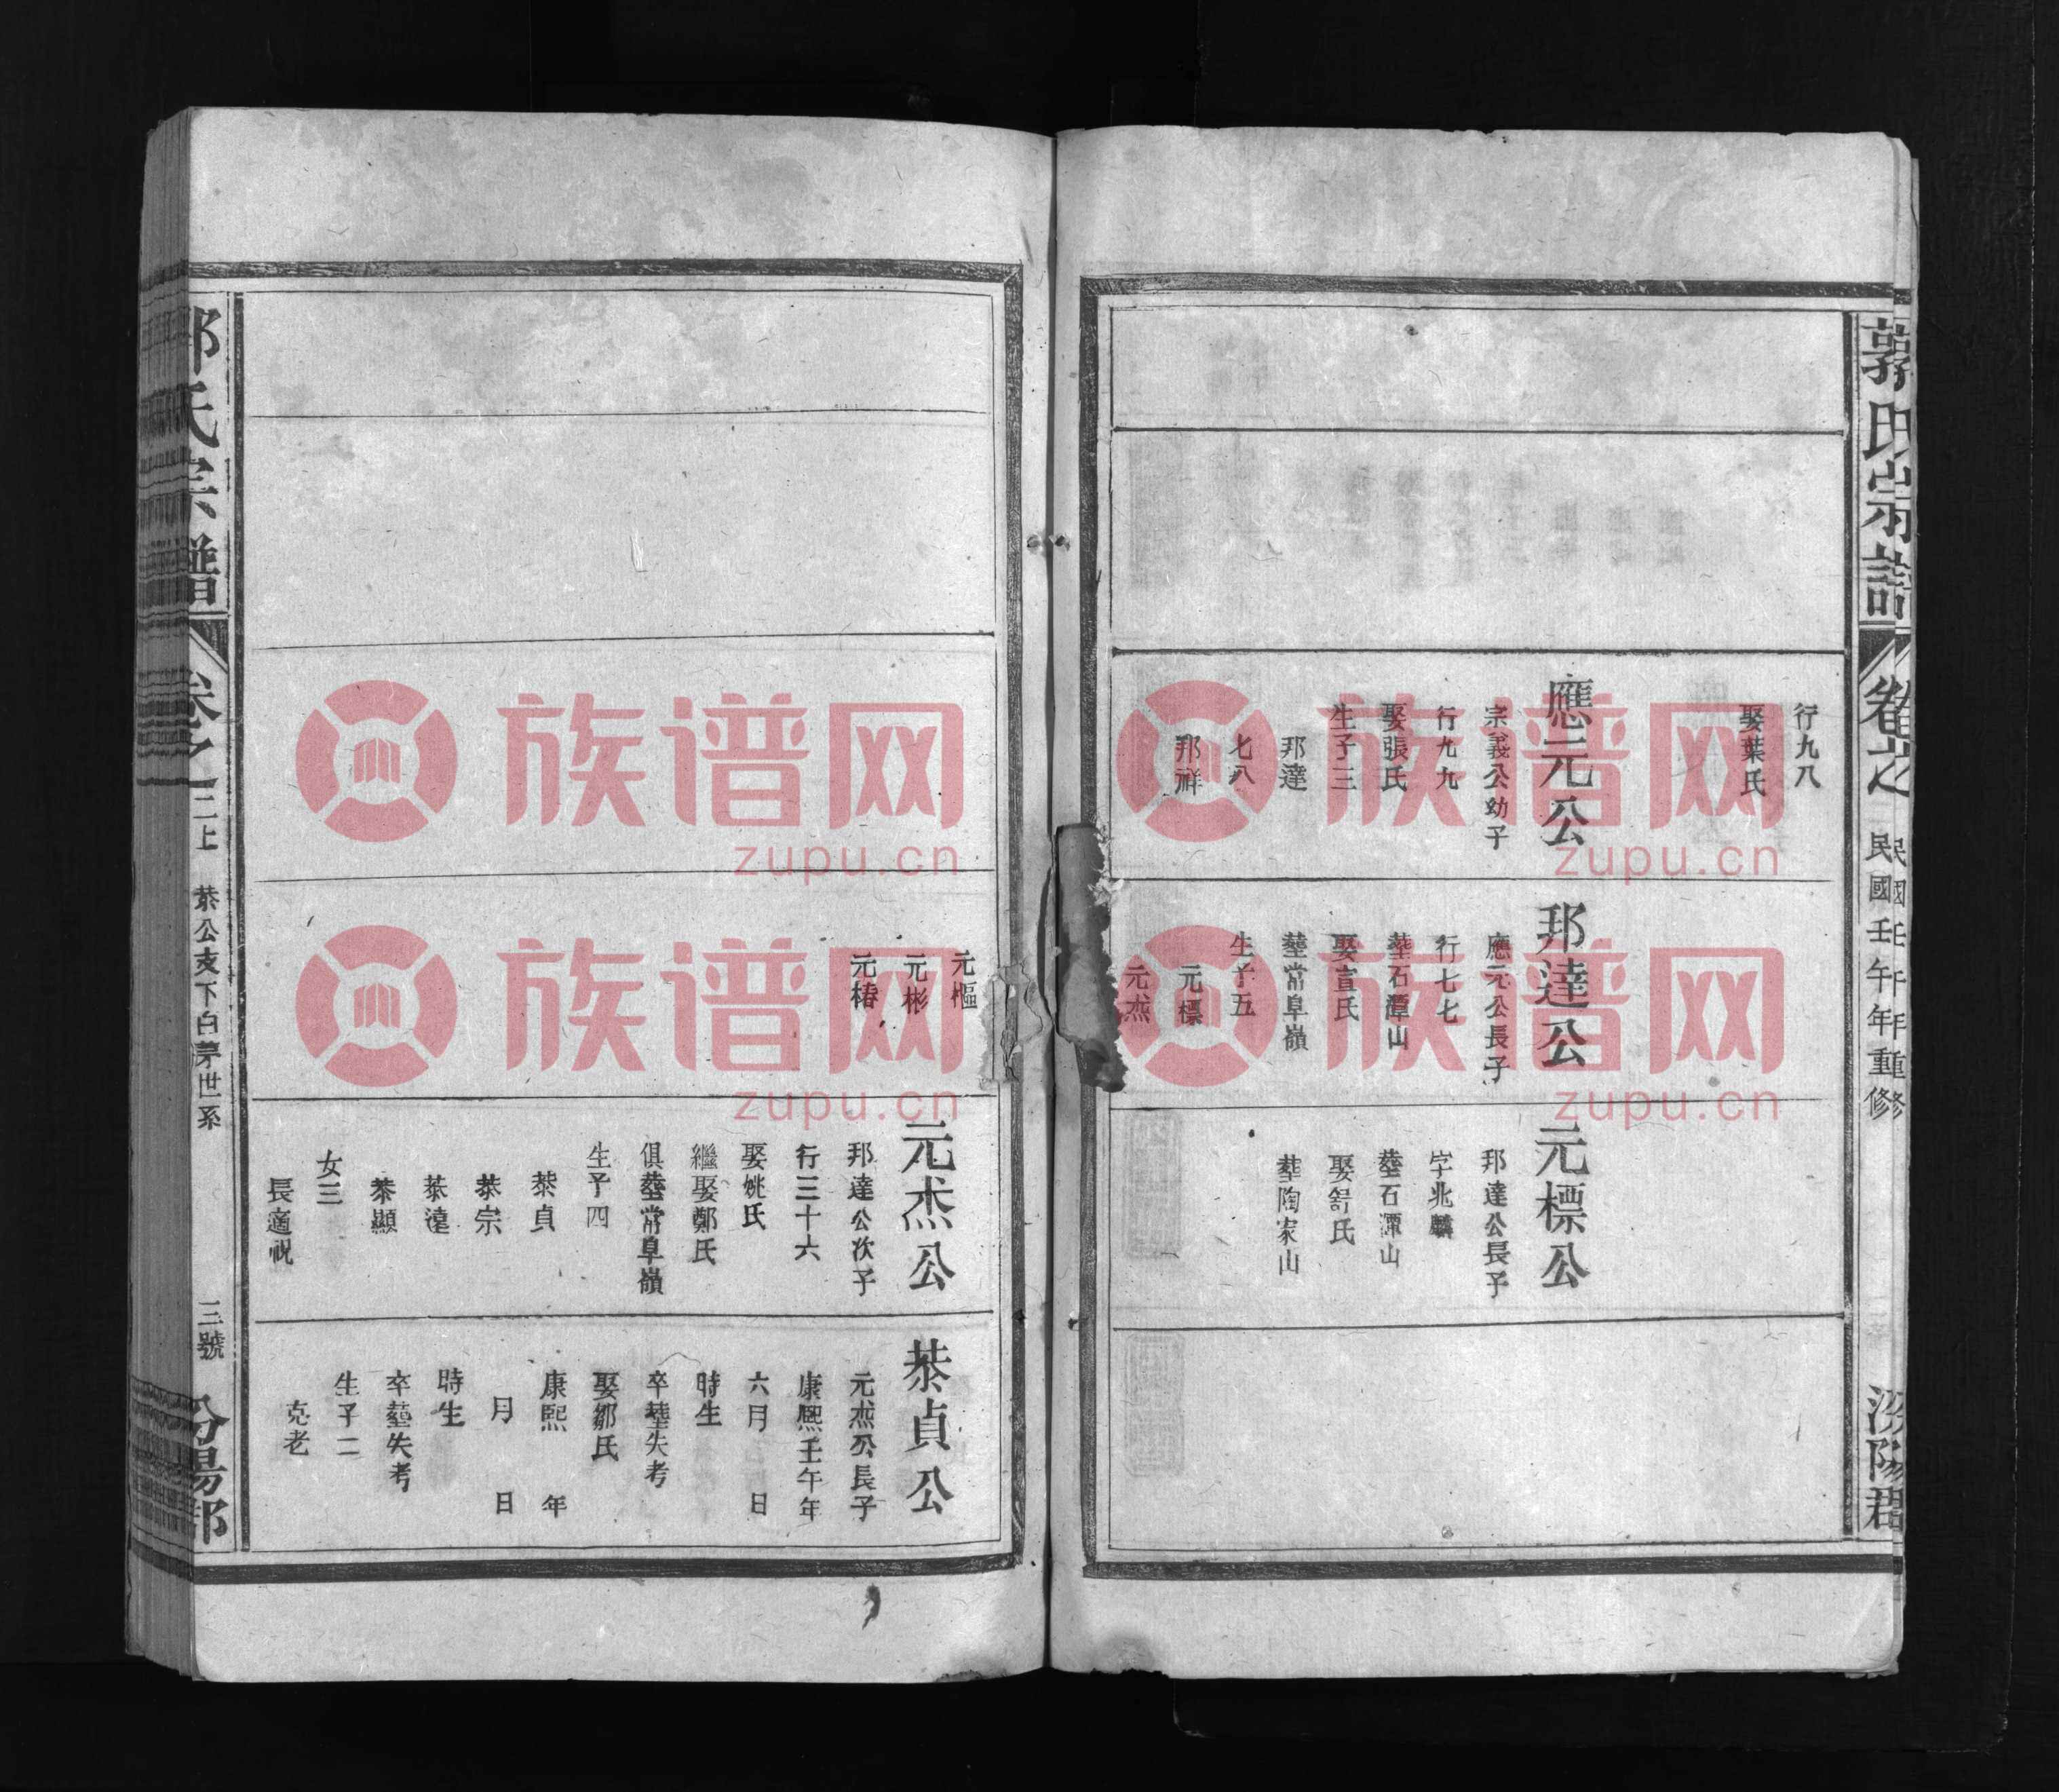 郭氏宗譜
卷之
民國壬午年重修
汾陽郡
行九八
娶葉氏
應元公
宗義公幼子
行九九
娶張氏
生子三
邦達
七八
邦祥
邦達公
應元公長子
行七七
塟石潭山
娶宣氏
塟常阜嶺
生子五
元標
元杰
元標公
邦達公長子
字兆麟
塟石潭山
娶舒氏
塟陶家山
元樞
元彬
元椿
元杰公
邦達公次子
行三十六
娶姚氏
繼娶鄭氏
俱塟常阜嶺
生子四
恭貞
恭宗
恭遠
恭顯
女三
長適祝
恭貞公
元杰公長子
康熙壬午年
六月 日
時生
卒塟失考
娶鄒氏
康熙 年
月 日
時生
卒塟失考
生子二
克老
郭氏宗譜
卷之二上
恭公支下白茅世系
三號
汾陽郡
族谱网
zupu.cn
族谱网
zupu.cn
族谱网
zupu.cn
族谱网
zupu.cn